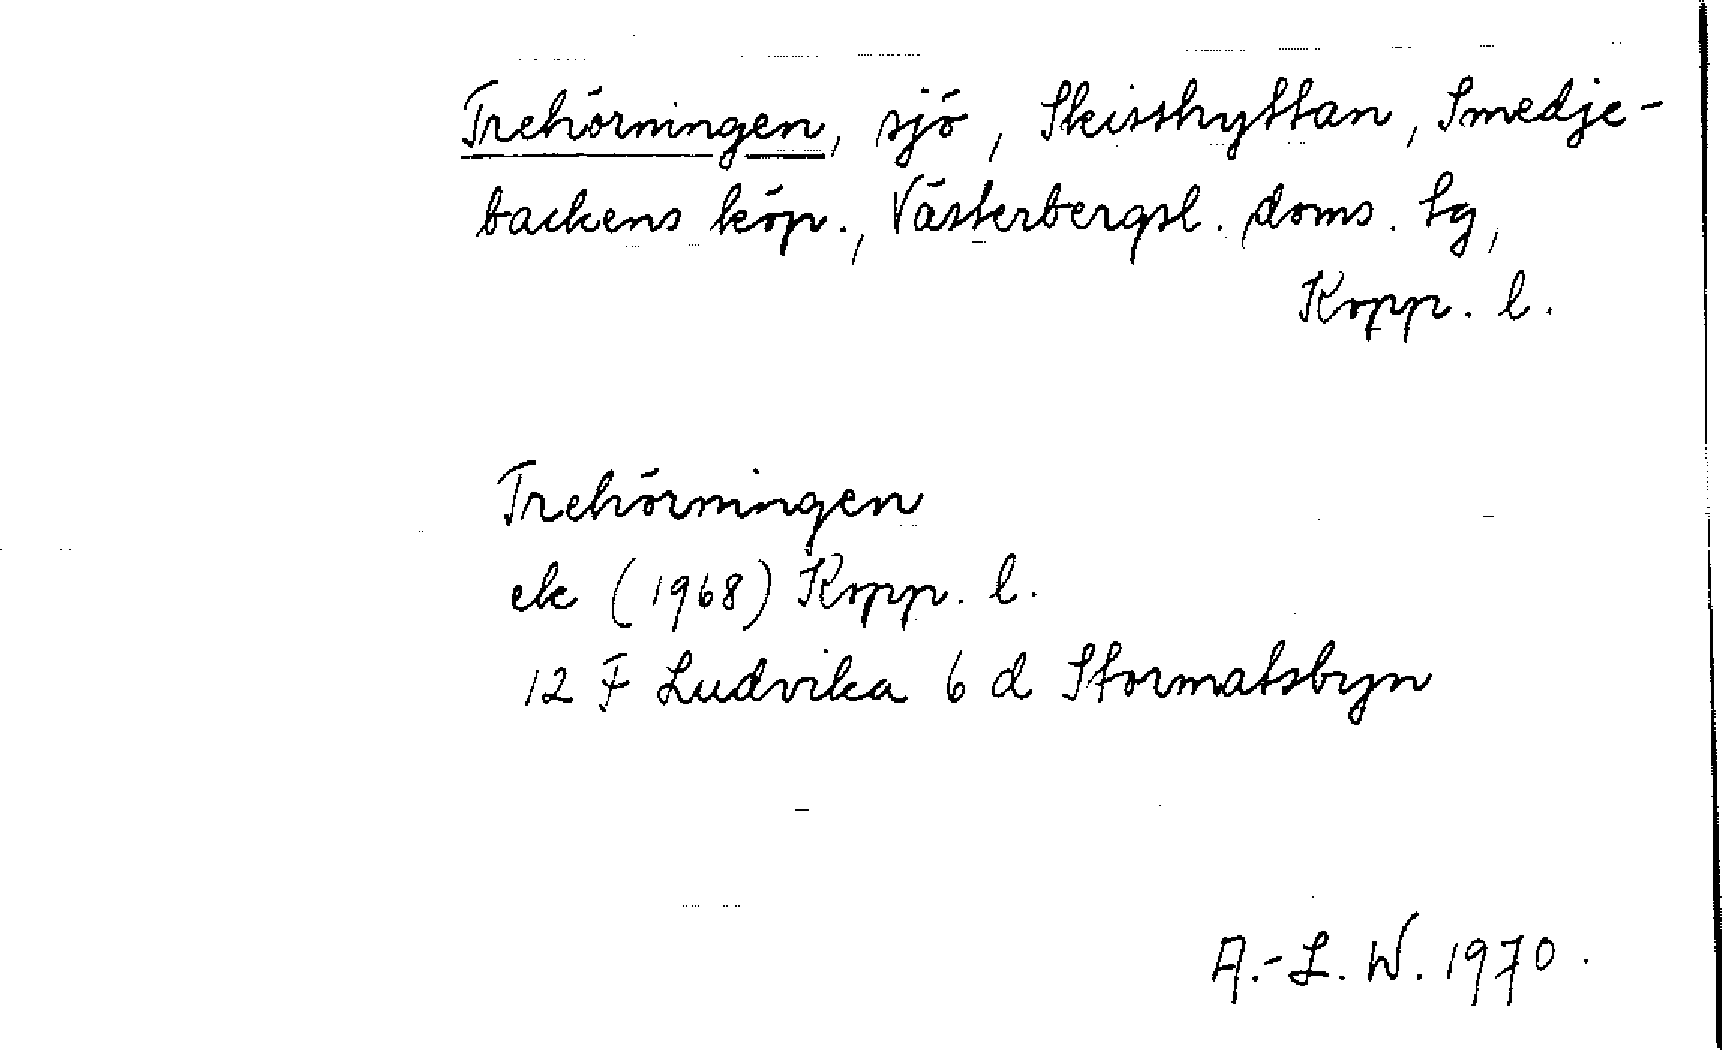 Trehörningen, sjö, Skisshyttan, Smedje-
backens köp., Västerbergsl. doms. tg,
Kopp. l.
Trehörningen
ek (1968) Kopp. l.
12 F Ludvika 6 d Stormatsbyn
A.-L. W. 1970.